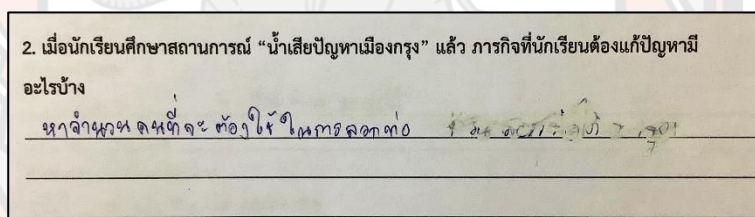 2. เมื่อนักเรียนศึกษาสถานการณ์ “น้ำเสียปัญหาเมืองกรุง” แล้ว ภารกิจที่นักเรียนต้องแก้ปัญหามี
อะไรบ้าง
หาจำนวนคนที่จะต้องใช้ในการลอกท่อ